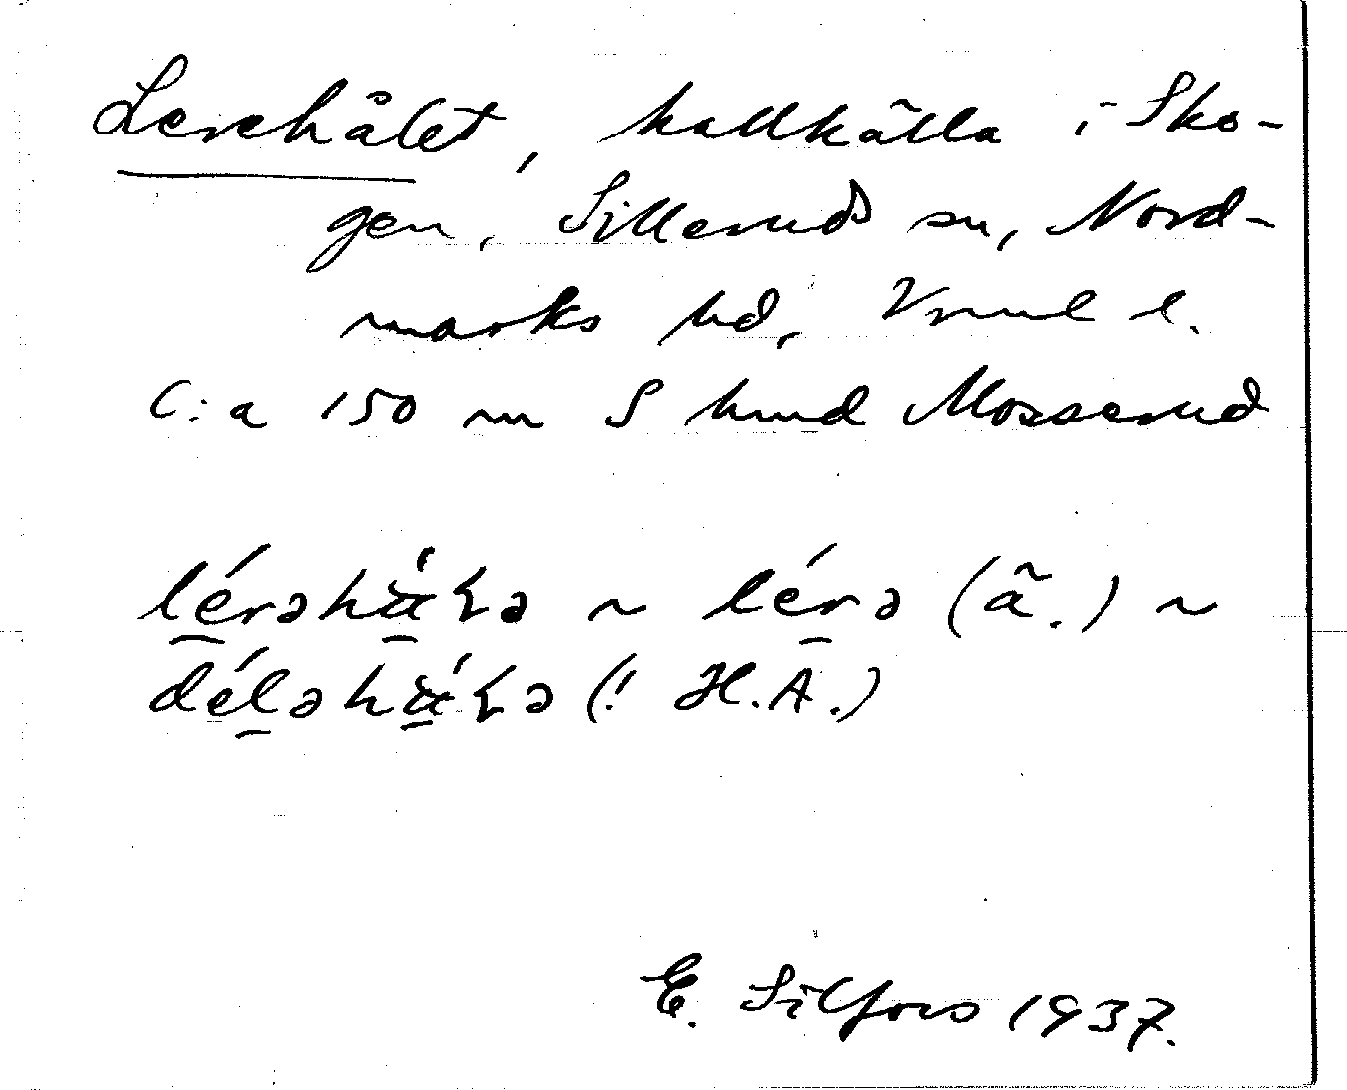 Lerehålet, kallkälla i Sko-
gen, Sillerud sn, Nord-
marks hd, Vrml l.
C:a 150 m S hmd Mosserud
lérəhå̀ʅə ~ lérə (ä.) ~
déləhå̀ʅə (! H.A.)
E. Silfors 1937.